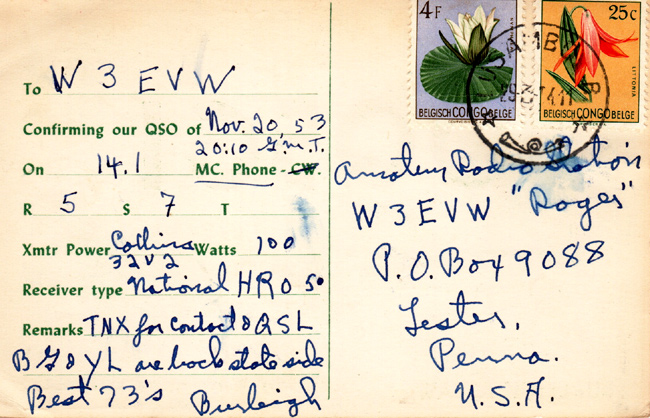 To W 3 EVW
Confirming our QSO of Nov. 20, 53
20:10 G.m.T.
On 14.1 MC. Phone - CW.
R 5 S 7 T
Xmtr Power Collins Watts 100
32V2
Receiver type National HRO 50
Remarks TNX for contact & QSL
are back state side
Best 73's Burleigh
4F
BELGISCH CONGO BELGE
25c
LITTONIA
BELGISCH CONGO BELGE
Amateur Radio Station
W 3 EVW "Roges"
P.O. Box 9088
Lester,
Penna.
U.S.A.